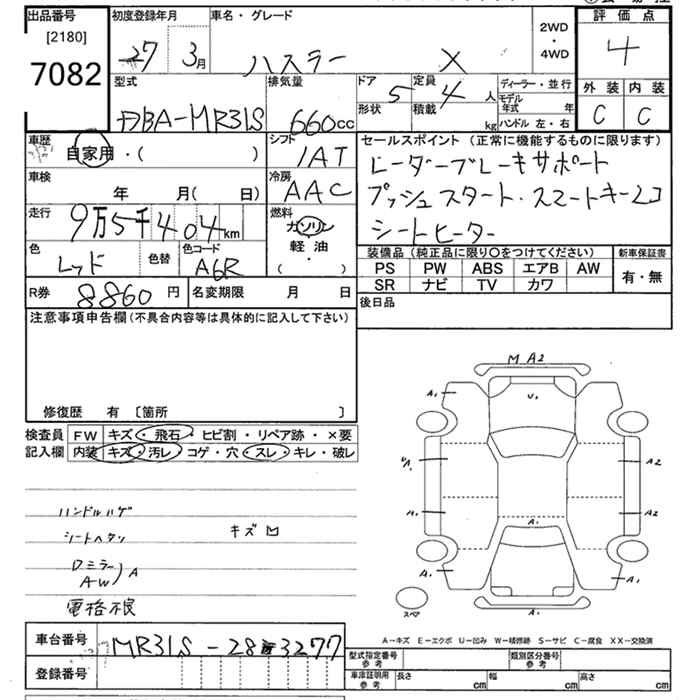 出品番号 初度登録年月 車名・グレード 評価点
[2180] 27 3月 ハスラー X 2WD・4WD 4
7082 型式 排気量 ドア 5 定員 4人 ディーラー・並行 外装 内装
DBA-MR31S 660cc 形状 積載 kg モデル年式 年 ハンドル 左・右 C C
車歴 シフト セールスポイント (正常に機能するものに限ります)
自家用・( ) IAT レーダーブレーキサポート
車検 冷房 プッシュスタート・スマートキー2コ
年 月( 日) AAC シートヒーター
走行 9万5千404km 燃料 ガソリン 軽油 ( ・ )
色 レッド 色替 色コード A6R 装備品(純正品に限り○をつけてください) 新車保証書
PS PW ABS エアB AW 有・無
SR ナビ TV カワ
R券 8860円 名変期限 月 日 後日品
注意事項申告欄(不具合内容等は具体的に記入して下さい)
修復歴 有 [箇所 ]
検査員 FW キズ・飛石・ヒビ割・リペア跡・×要
記入欄 内装 キズ・汚レ・コゲ・穴・スレ・キレ・破レ
MA2
A1 U1
A1 A2
A1 A1 A2
A1 A1
スペア
A1
ハンドルハゲ
シートヘタリ キズ
Dミラー
AW )A
電格不良
A-キズ E-エクボ U-凹み W-補修跡 S-サビ C-腐食 XX-交換済
車台番号 MR31S-283277
登録番号
型式指定番号 参考 類別区分番号 参考
車庫証明用 参考 長さ cm 幅 cm 高さ cm